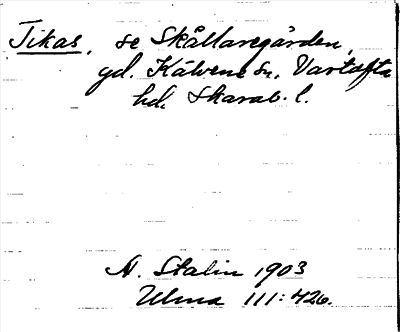 Tikas, se Skållaregården,
gd. Kälvene sn, Vartofta
hd, Skarab. l.
N. Stalin 1903
Ulma 111:426.